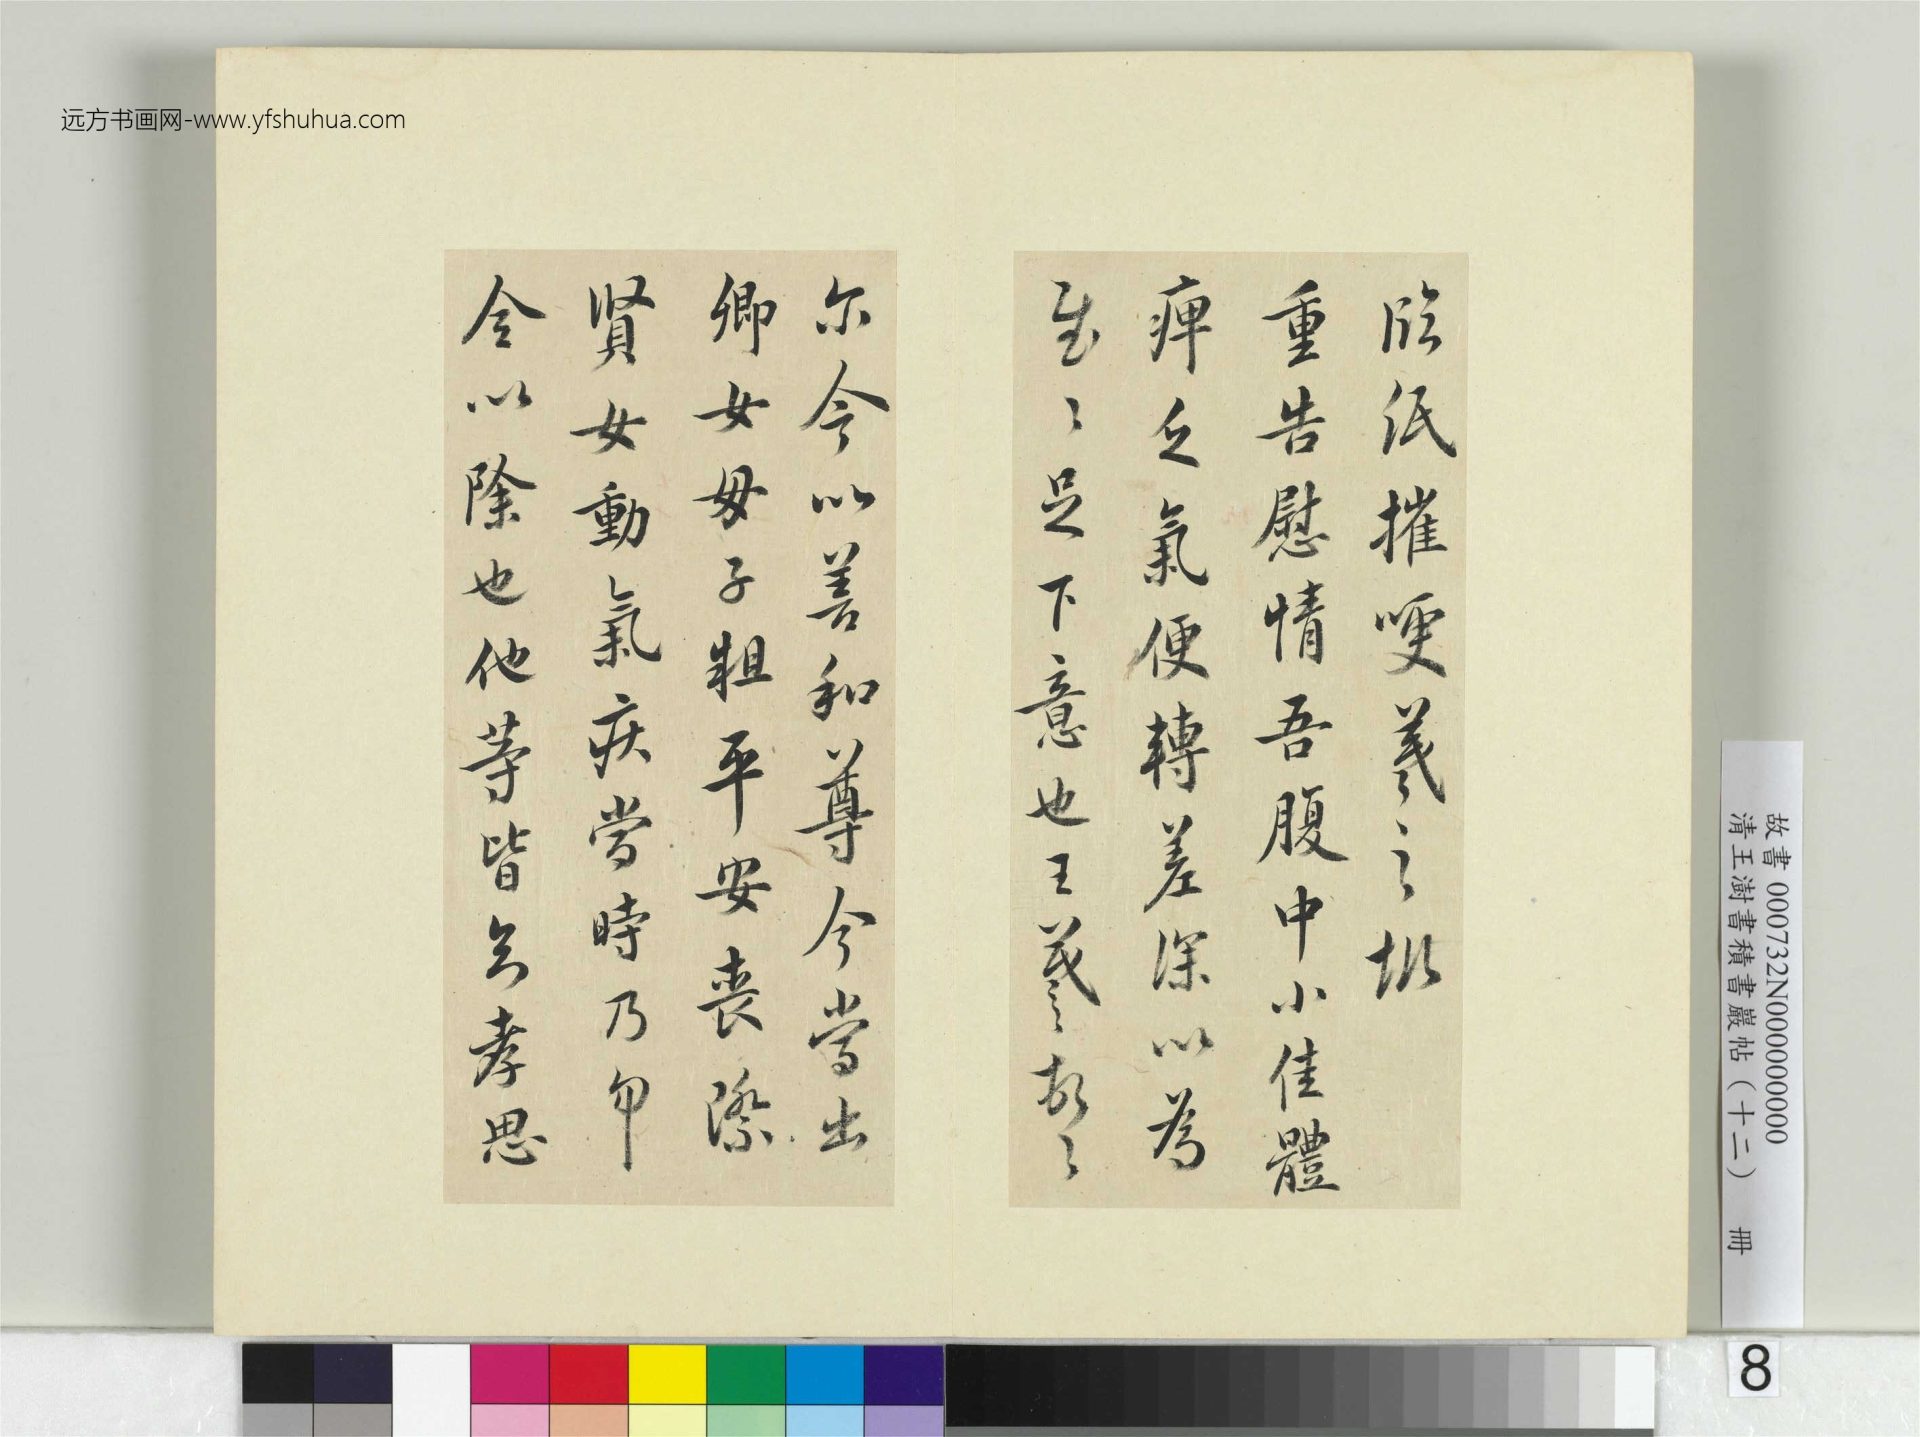 远方书画网-www.yfshuhua.com
臨紙摧哽羲之批
重告慰情吾腹中小佳體
痺乏氣便轉差深以為
足下意也王羲之
尔今以善和尊今當出
卿女母子粗平安喪際
賢女動氣疾當時乃勿
今以除也他等皆孝思
故書 000732N000000000
清王澍書積書巖帖(十二) 冊
8